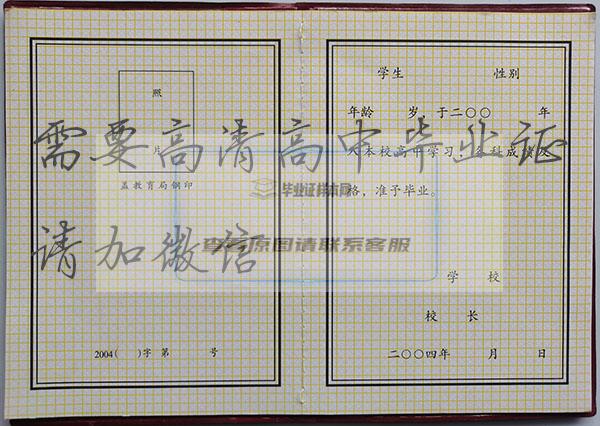 照
片
盖教育局钢印
2004( )字 第 号
学生 性别
年龄 岁，于二〇〇 年
本校高中学习，各科成绩及
格，准予毕业。
学 校
校 长
二〇〇四年 月 日
需要高清高中毕业证
请加微信
毕业证样本网
查看原图请联系客服